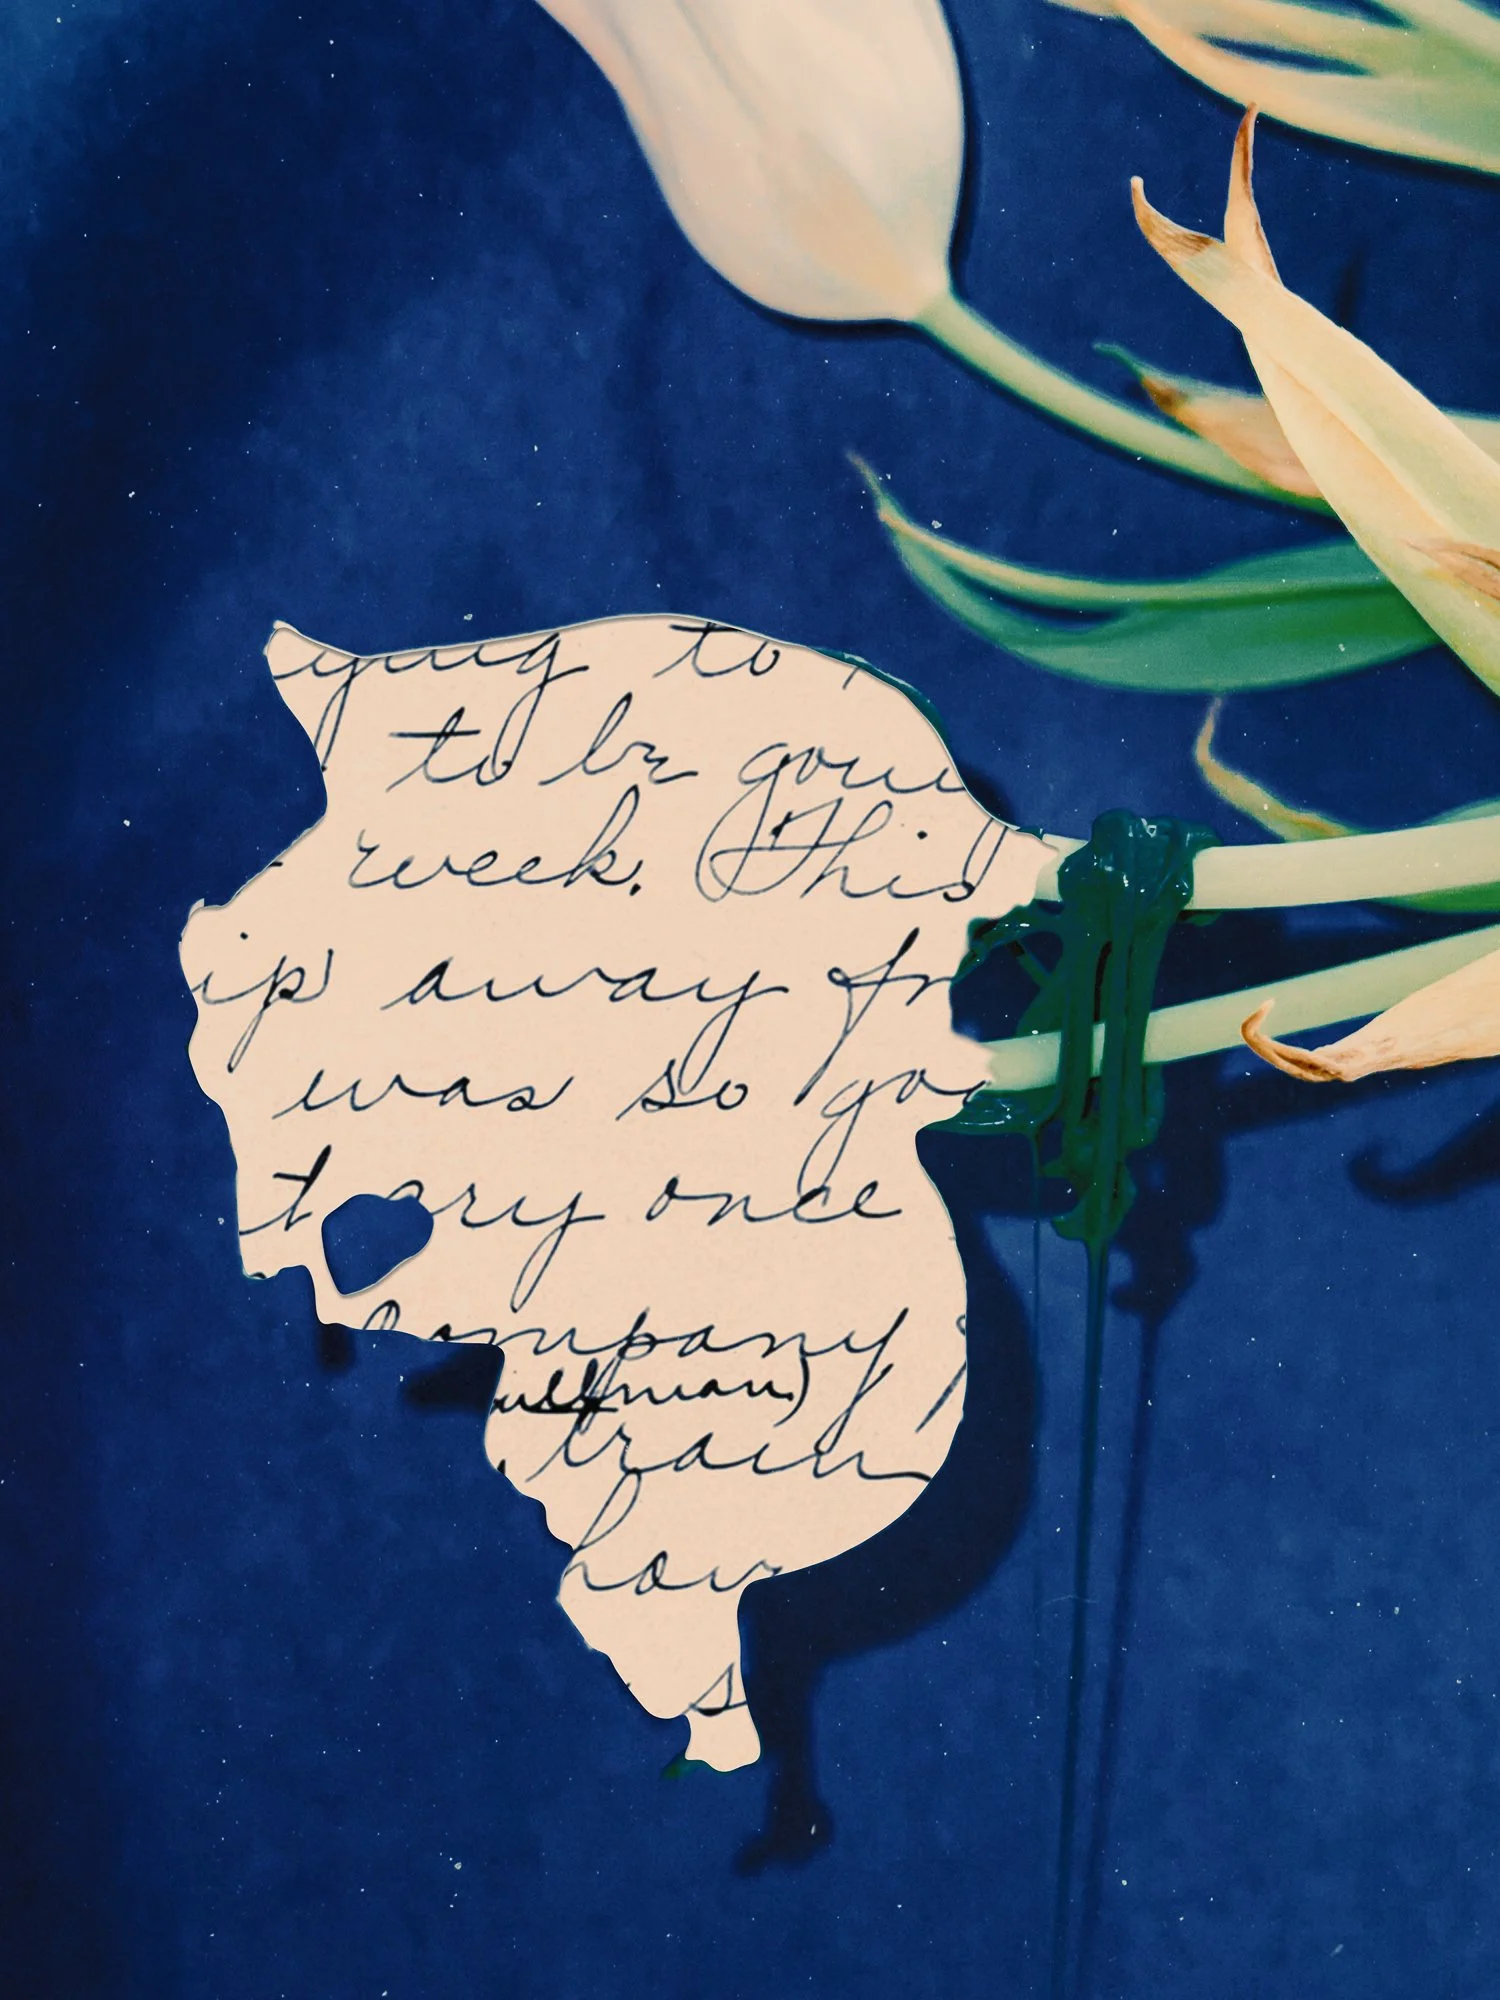 to
to be gon
week. This
ip away fr
was so go
t ory once
ompany
ullman)
train
how
s